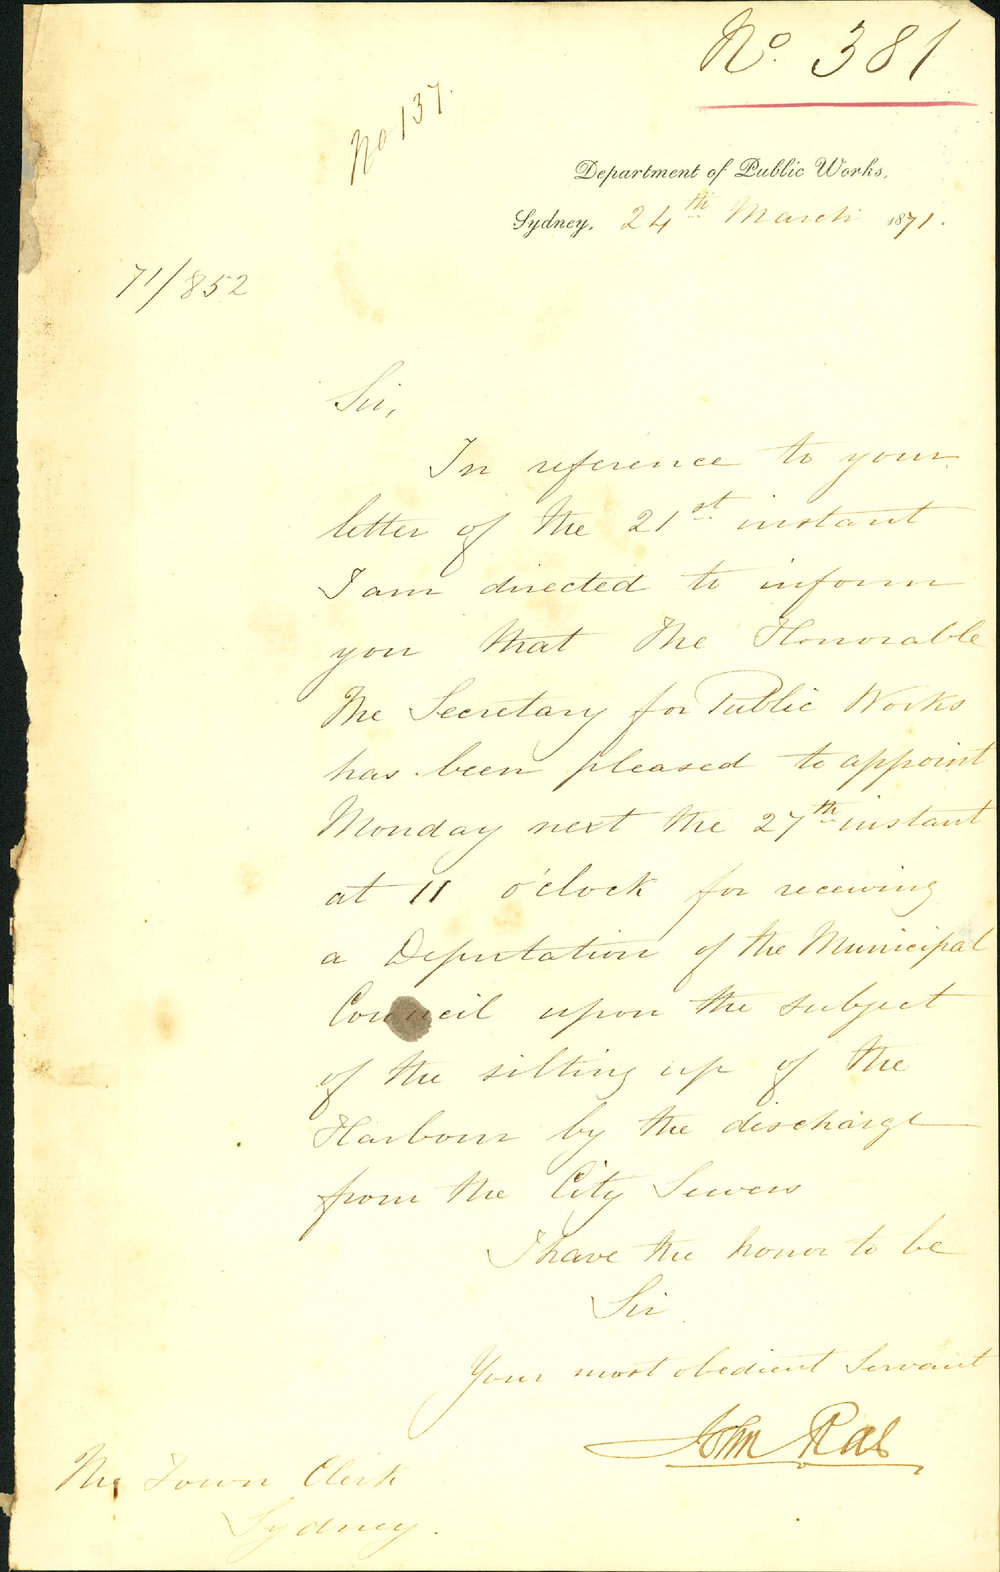 No. 381
No 137.
Department of Public Works,
Sydney, 24th March 1871.
71/852
Sir,
In reference to your
letter of the 21st instant
I am directed to inform
you that the Honorable
the Secretary for Public Works
has been pleased to appoint
Monday next the 27th instant
at 11 o'clock for receiving
a Deputation of the Municipal
Council upon the subject
of the silting up of the
Harbour by the discharge
from the City Sewers
I have the honor to be
Sir
Your most obedient Servant
John Rae
The Town Clerk
Sydney.